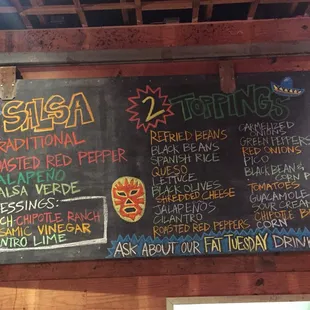 SALSA
TRADITIONAL
ROASTED RED PEPPER
JALAPEÑO
SALSA VERDE
DRESSINGS:
CHIPOTLE RANCH
BALSAMIC VINEGAR
LIME
2 TOPPINGS
REFRIED BEANS
BLACK BEANS
SPANISH RICE
QUESO
LETTUCE
BLACK OLIVES
SHREDDED CHEESE
JALAPEÑOS
CILANTRO
ROASTED RED PEPPERS
CARMELIZED
ONIONS
GREEN PEPPERS
RED ONIONS
PICO
BLACK BEAN &
CORN
TOMATOES
GUACAMOLE
SOUR CREAM
CHIPOTLE
CORN
ASK ABOUT OUR FAT TUESDAY DRINK